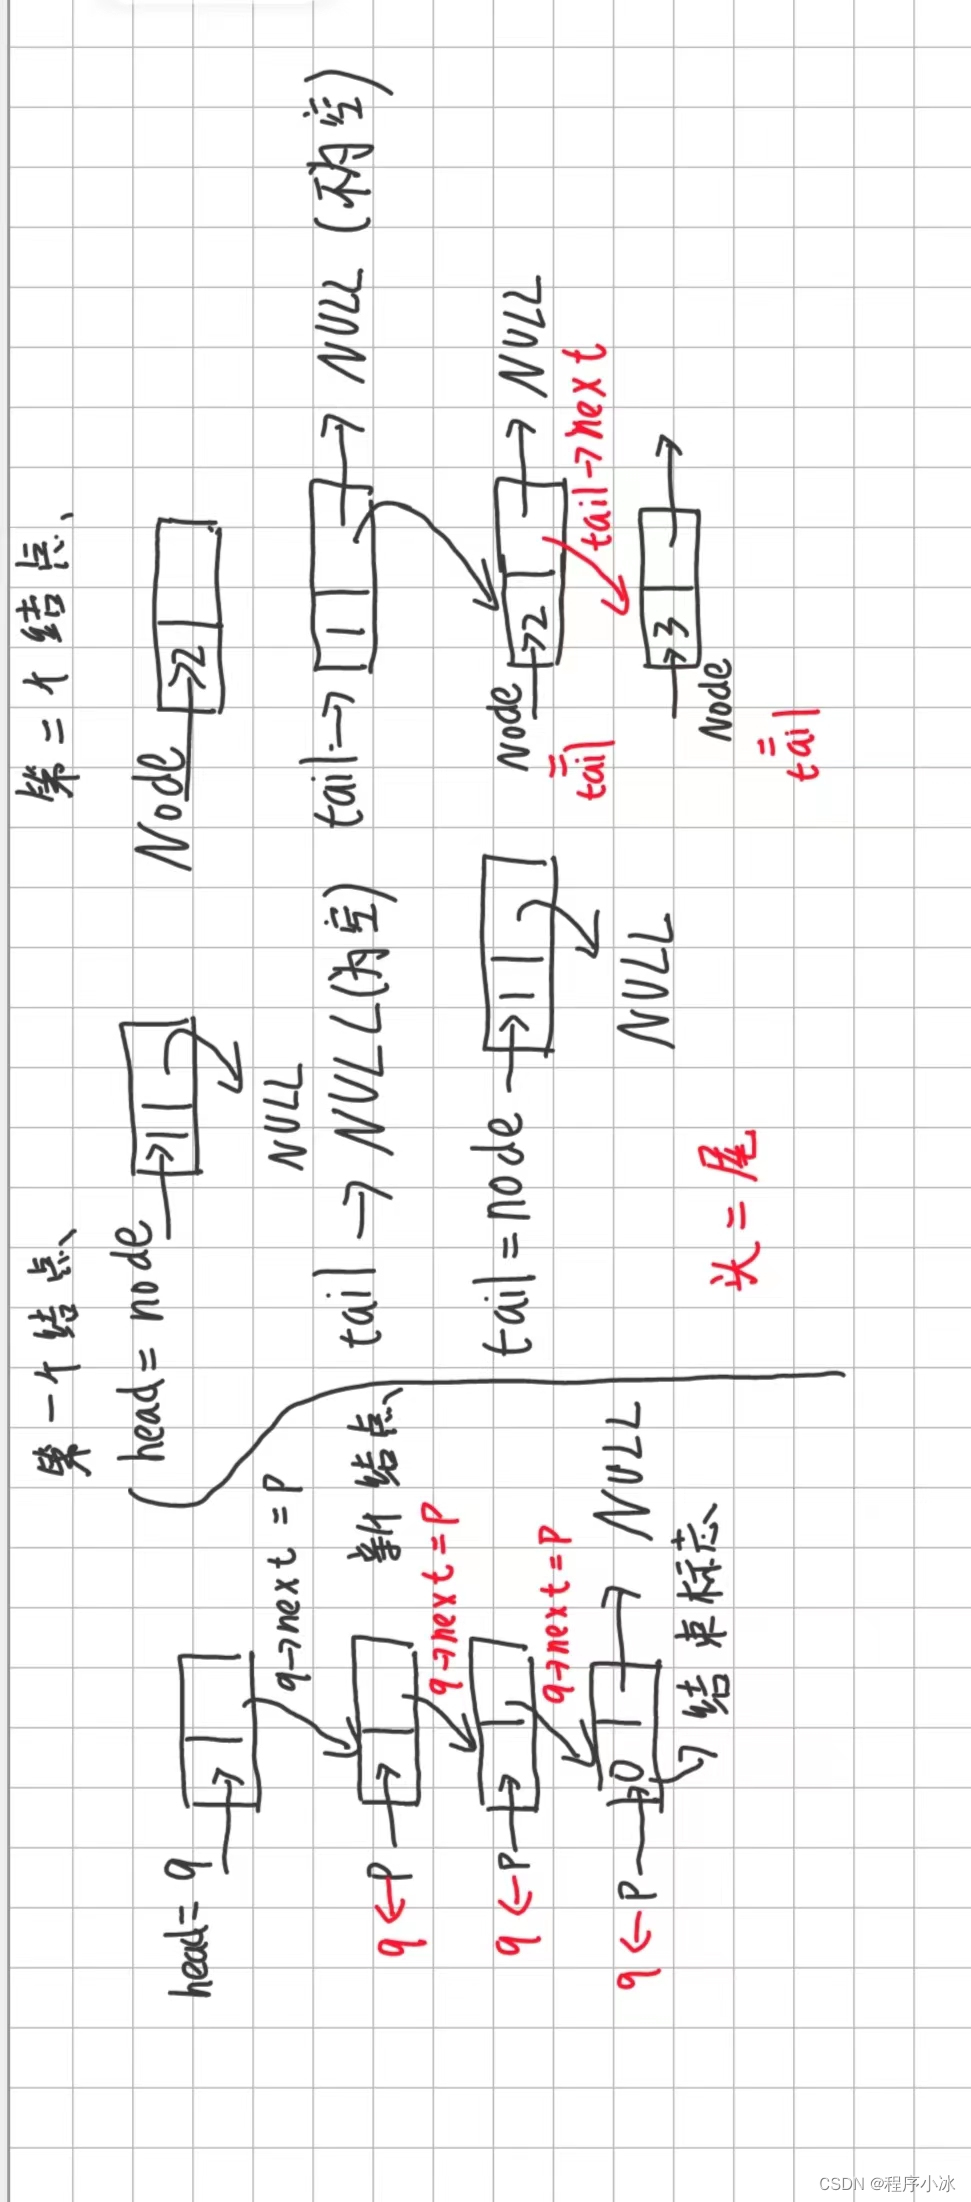 head=q
q→next=p
新结点
q←p
q→next=p
q←p
q→next=p
q←p
0
NULL
结束标志
第一个结点
head=node
1
NULL
tail→NULL(为空)
tail=node
1
NULL
头=尾
第二个结点
Node
2
tail→
1
NULL(不为空)
Node
2
NULL
=
tail
tail→next
Node
3
=
tail
CSDN @程序小冰